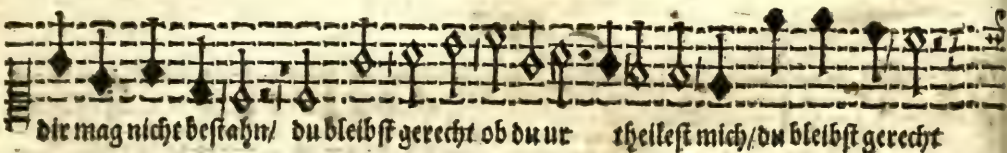 dir mag nicht bestahn/ du bleibst gerecht ob du ur theilest mich/ du bleibst gerecht